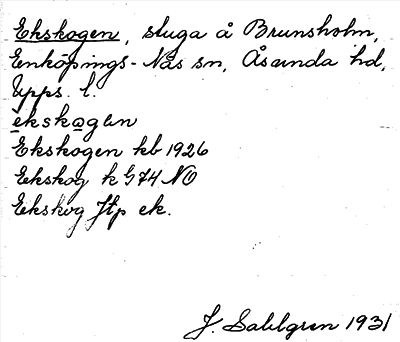 Ekskogen, stuga å Brunsholm,
Enköpings-Näs sn, Åsunda hd,
Upps. l.
ekskogen
Ekskogen kb 1926
Ekskog k G74 NO
Ekskog Jtp ek.
J. Sahlgren 1931